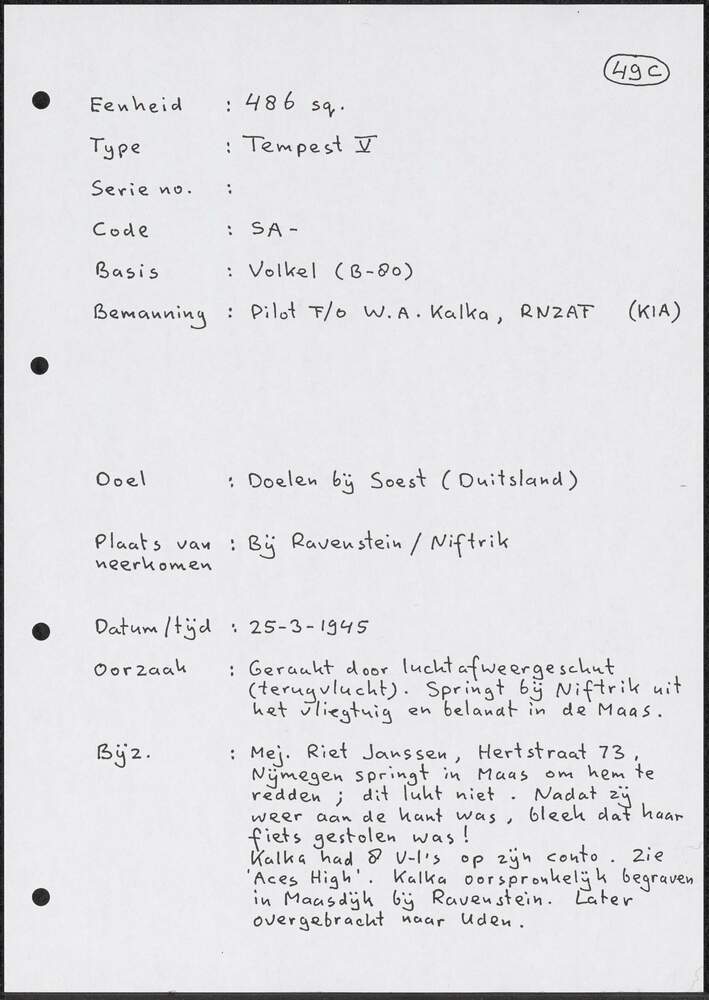 49C
Eenheid : 486 sq.
Type : Tempest V
Serie no. :
Code : SA-
Basis : Volkel (B-80)
Bemanning : Pilot F/o W.A. Kalka, RNZAF (KIA)
Doel : Doelen bij Soest (Duitsland)
Plaats van : Bij Ravenstein / Niftrik
neerkomen
Datum/tijd : 25-3-1945
Oorzaak : Geraakt door luchtafweergeschut
(terugvlucht). Springt bij Niftrik uit
het vliegtuig en belandt in de Maas.
Bijz. : Mej. Riet Janssen, Hertstraat 73,
Nijmegen springt in Maas om hem te
redden ; dit lukt niet . Nadat zij
weer aan de kant was , bleek dat haar
fiets gestolen was !
Kalka had 8 V-1's op zijn conto . Zie
'Aces High'. Kalka oorspronkelijk begraven
in Maasdijk bij Ravenstein. Later
overgebracht naar Uden .